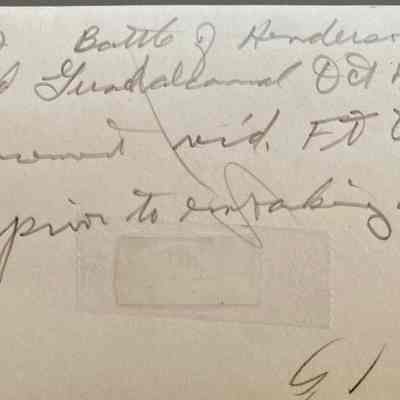 Battle of Henderson
Guadalcanal Oct
rec'd. Ft
prior to embarking
G